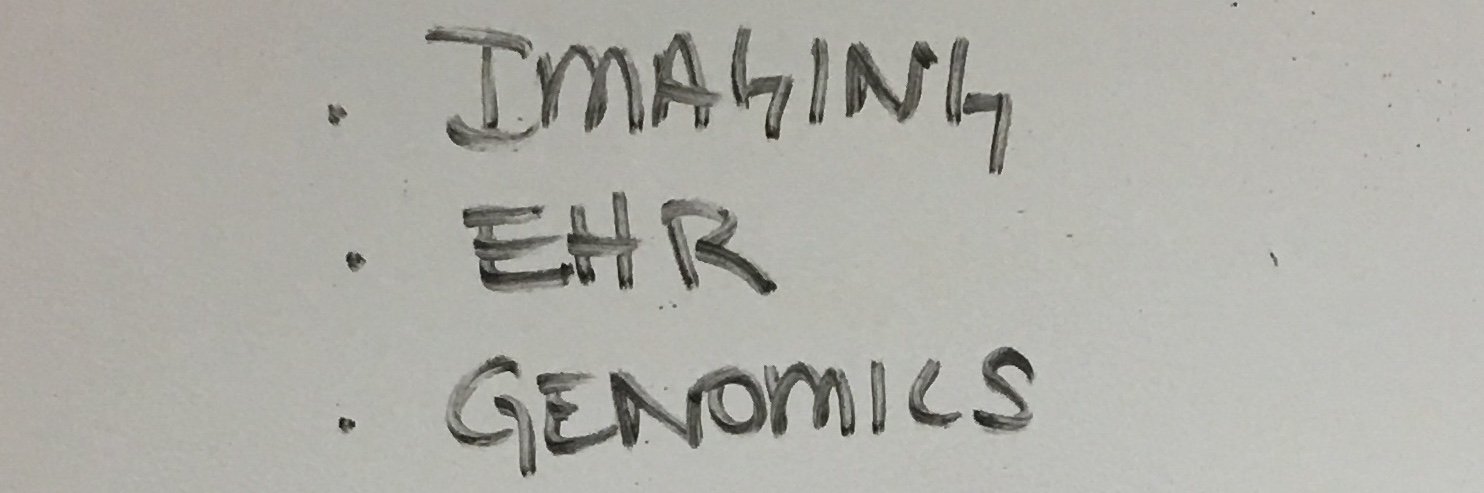 . IMAGING
. EHR
. GENOMICS